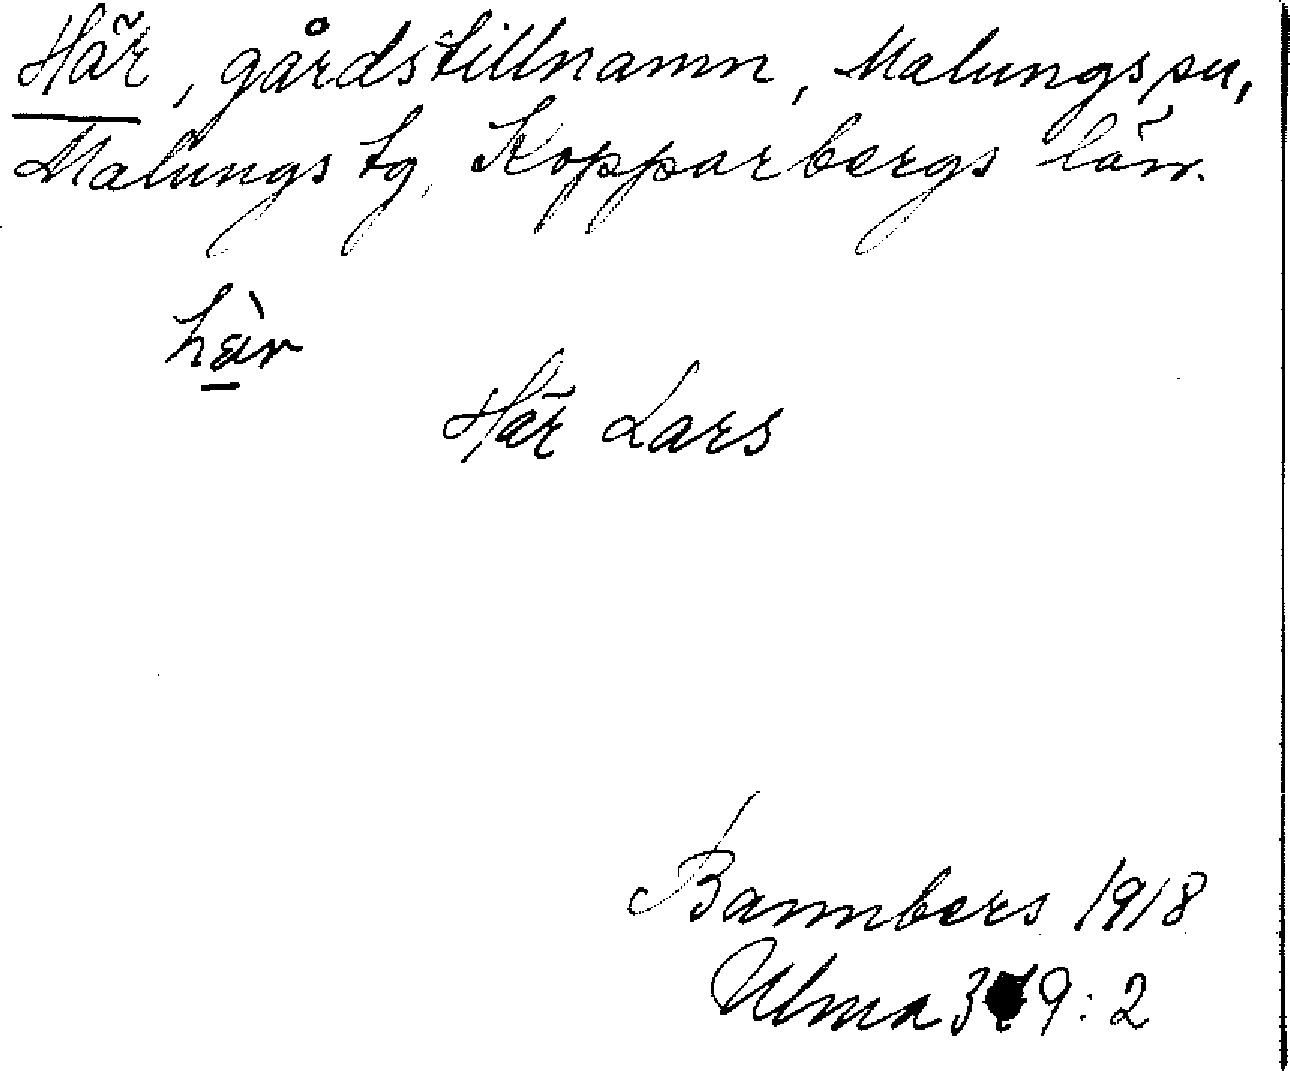 Här, gårdstillnamn, Malungs sn,
Malungs tg, Kopparbergs län.
hàr
Här Lars
Bannbers 1918
Ulma 9:2